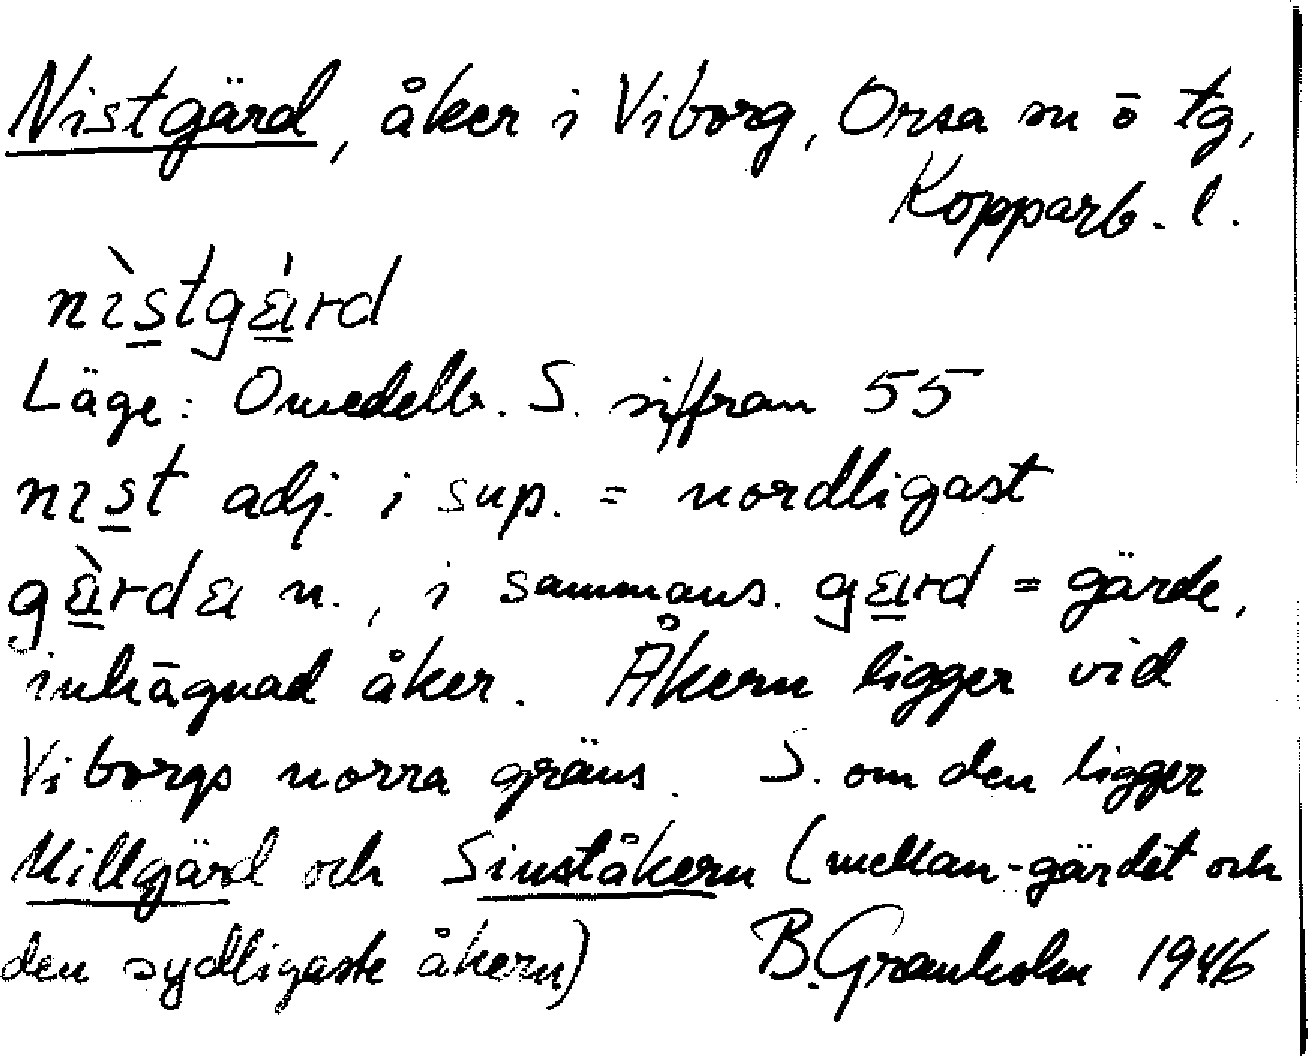 Nistgärd, åker i Viborg, Orsa sn ö tg,
Kopparb. l.
nìstgɛ́ırd
Läge: Omedelb. S. siffran 55
nıst adj. i sup. = nordligast
gɛ̀ırdɛı n., i sammans. gɛırd = gärde,
inhägnad åker. Åkern ligger vid
Viborgs norra gräns. S. om den ligger
Millgärd och Sinståkern (mellan-gärdet och
den sydligaste åkern) B. Granholm 1946